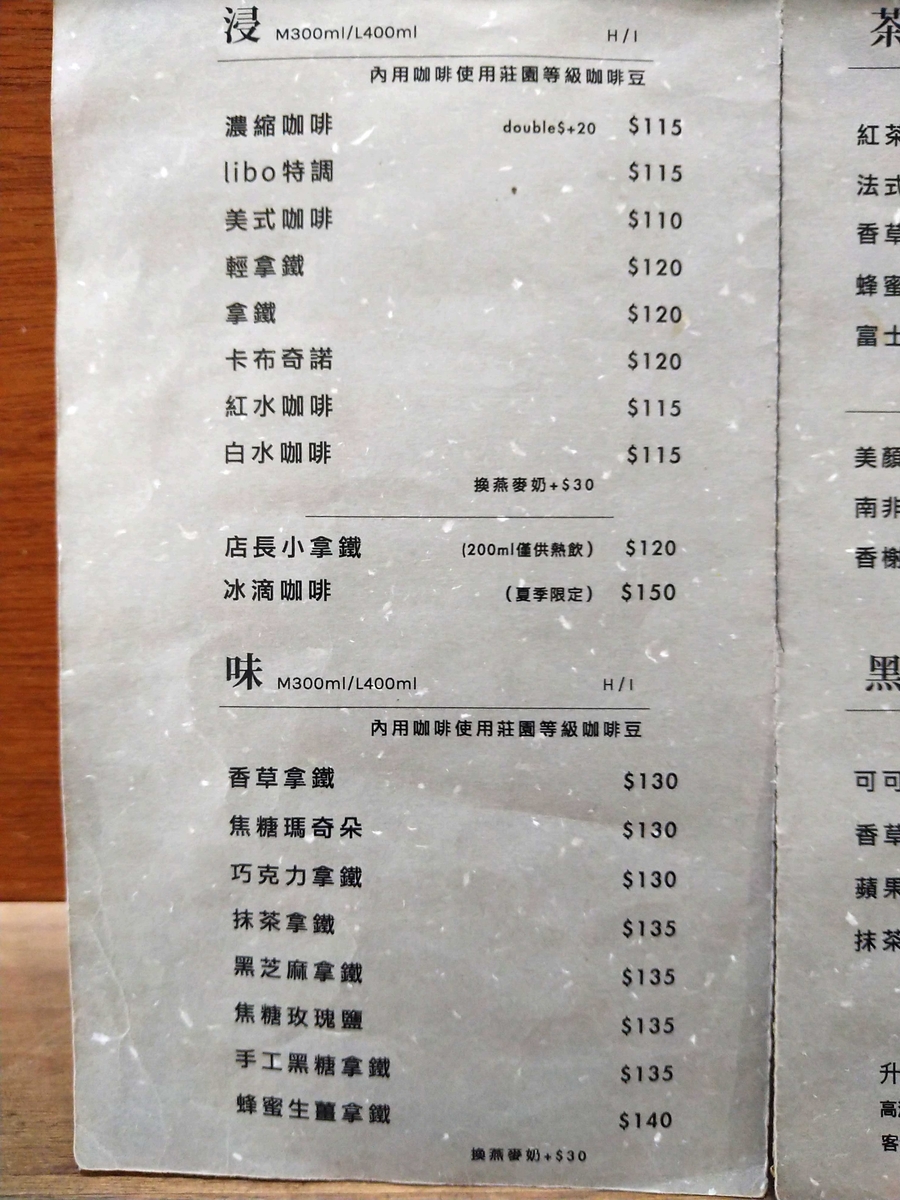 浸 M300ml/L400ml H/I
內用咖啡使用莊園等級咖啡豆
濃縮咖啡 double$+20 $115
libo特調 $115
美式咖啡 $110
輕拿鐵 $120
拿鐵 $120
卡布奇諾 $120
紅水咖啡 $115
白水咖啡 $115
換燕麥奶+$30
店長小拿鐵 (200ml僅供熱飲) $120
冰滴咖啡 (夏季限定) $150
味 M300ml/L400ml H/I
內用咖啡使用莊園等級咖啡豆
香草拿鐵 $130
焦糖瑪奇朵 $130
巧克力拿鐵 $130
抹茶拿鐵 $135
黑芝麻拿鐵 $135
焦糖玫瑰鹽 $135
手工黑糖拿鐵 $135
蜂蜜生薑拿鐵 $140
換燕麥奶+$30
茶
紅茶
法式
香草
蜂蜜
富士
美顏
南非
香榭
黑
可可
香草
蘋果
抹茶
升
高
客